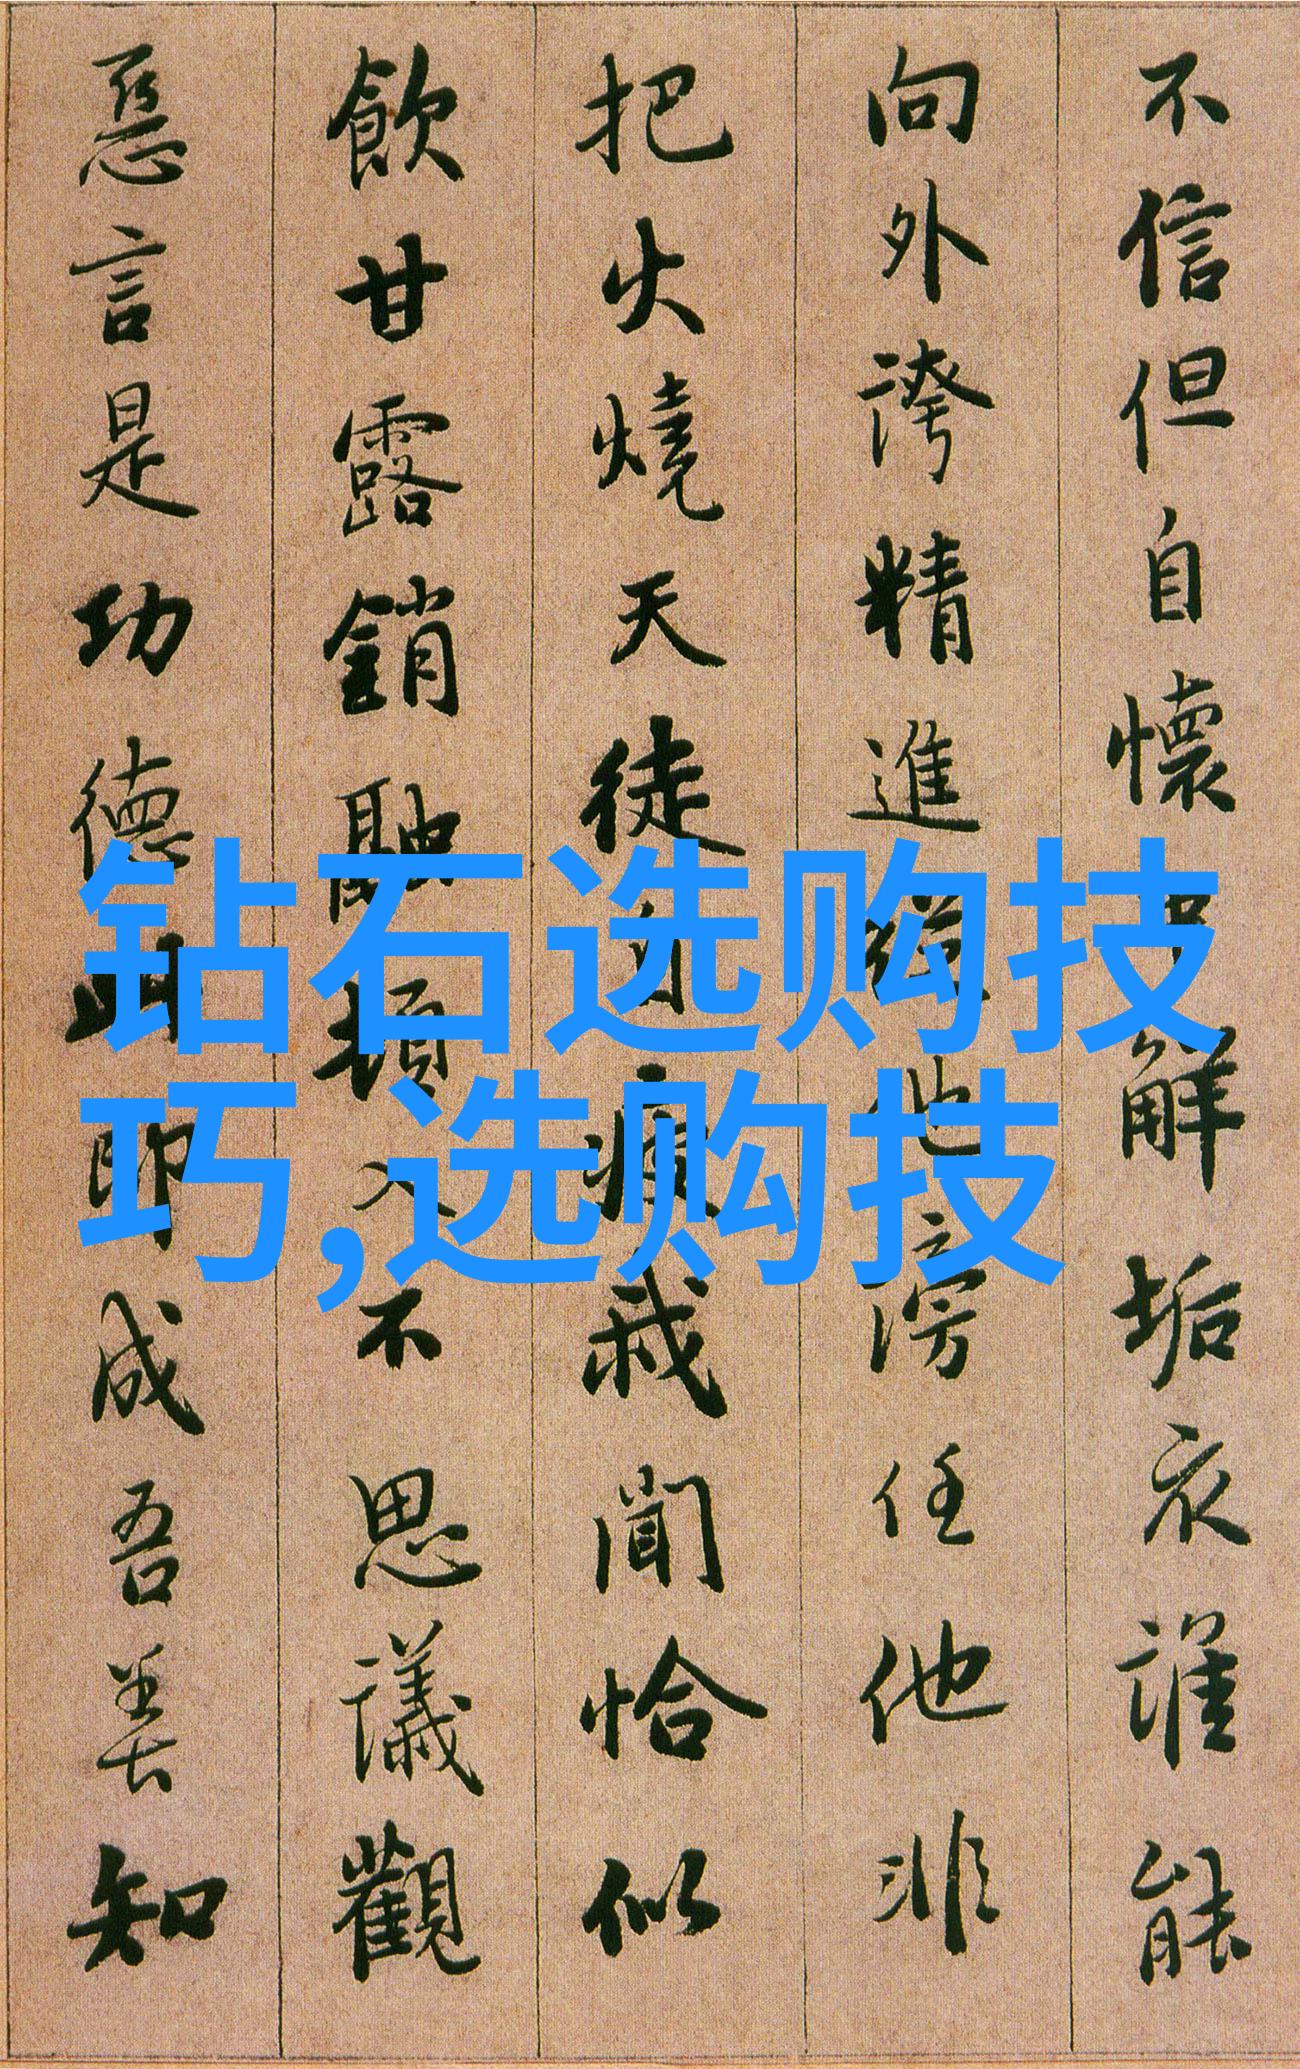 不信但自懷中解垢衣誰能
向外誇精進從他謗任他非
把火燒天徒自疲我聞恰似
飲甘露銷融頓入不思議觀
惡言是功德此即成吾善知
钻石选购技
巧,选购技